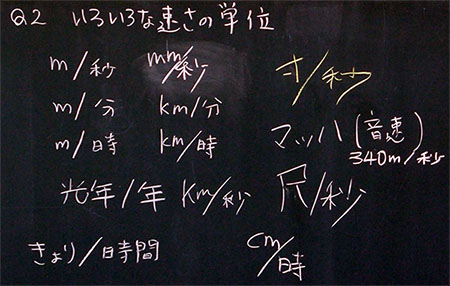 Q2 いろいろな速さの単位
m/秒 mm/秒 寸/秒
m/分 km/分
m/時 km/時 マッハ(音速)
340m/秒
光年/年 km/秒 尺/秒
きょり/時間 cm/時